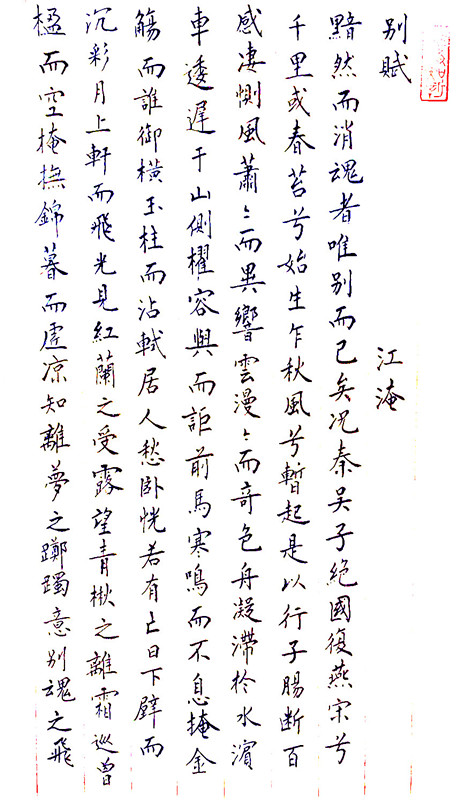 別賦
江淹
黯然而消魂者唯别而已矣况秦吴子絶國復燕宋兮
千里或春苔兮始生乍秋風兮暫起是以行子腸断百
感凄惻風蕭〻而異響雲漫〻而奇色舟凝滞於水濱
車逶遲于山側櫂容與而詎前馬寒鳴而不息掩金
觴而誰御橫玉柱而沾軾居人愁卧恍若有亡日下壁而
沉彩月上軒而飛光見紅蘭之受露望青楸之離霜巡曾
楹而空掩撫錦幕而虚凉知離夢之躑躅意别魂之飛